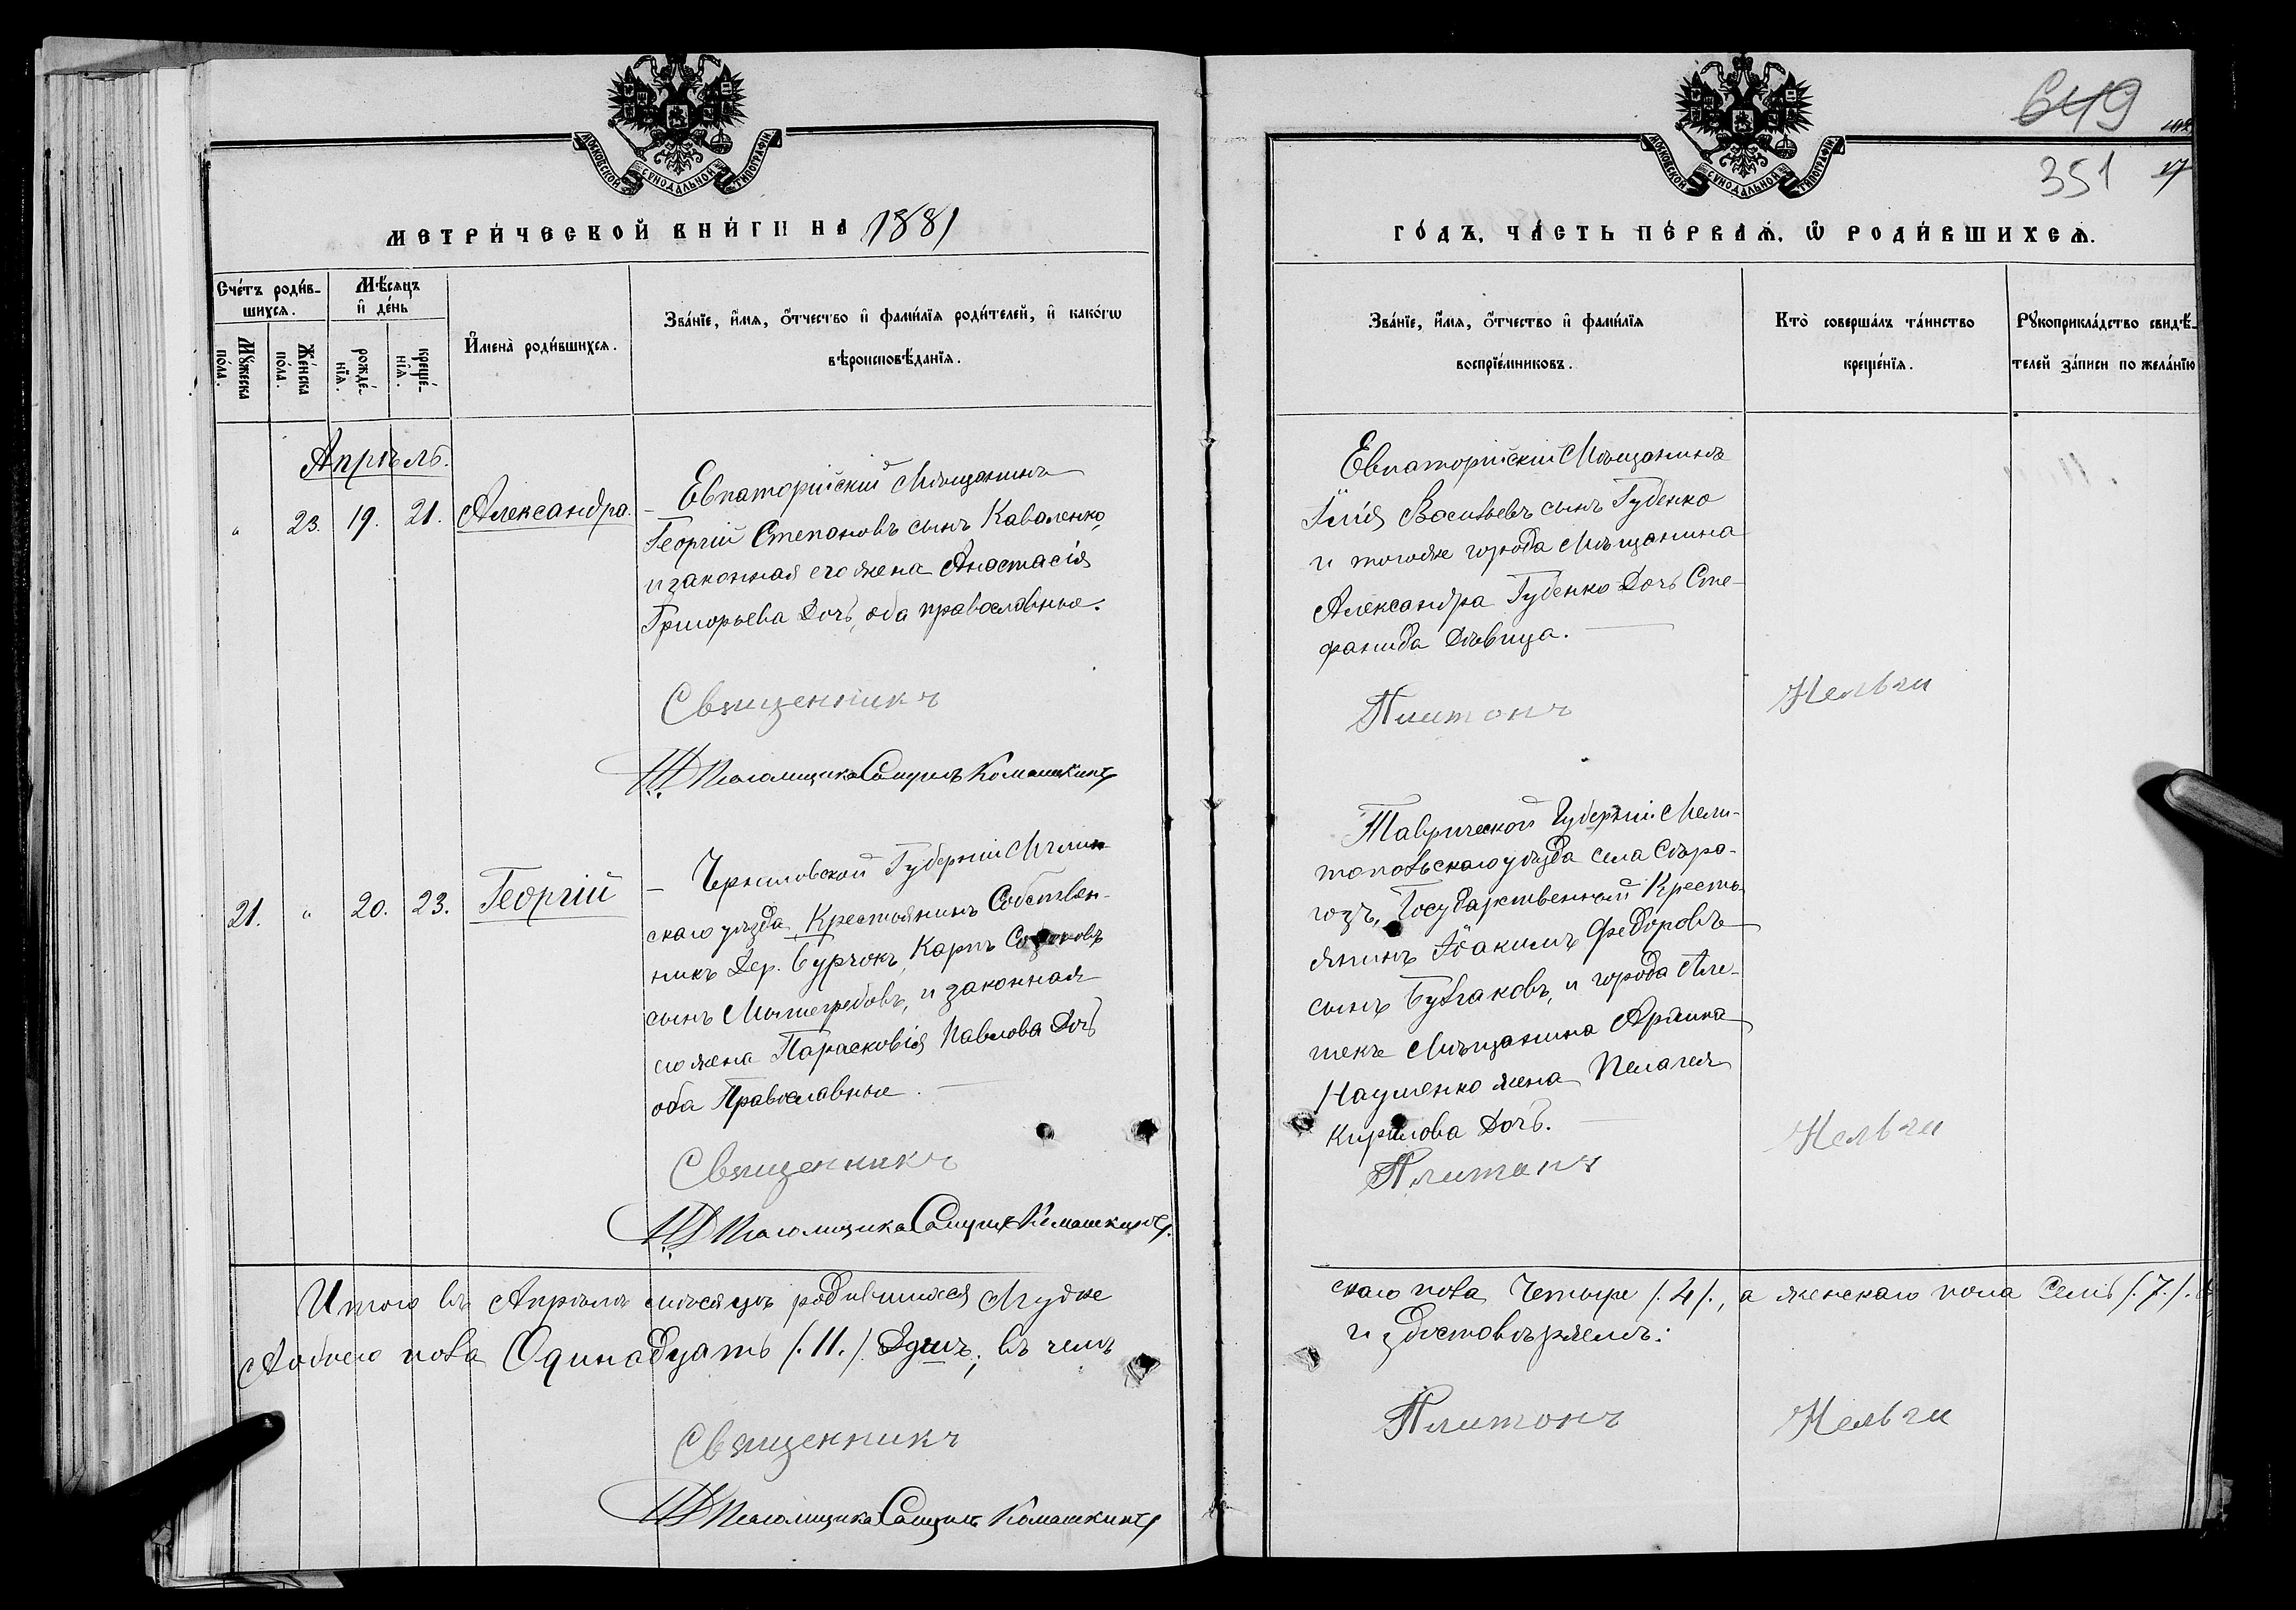 МОСКОВСКОЙ СѴНОДАЛЬНОЙ ТИПОГРАФІИ
МЕТРИ́ЧЕСКОЙ КНИ́ГИ НА 1881
Сче́тъ роди́в-
шихся.
Мѣ́сяцъ
и҆ де́нь
Мꙋ́жеска
по́ла.
Же́нска
по́ла.
рожде́-
нїя.
креще́-
нїя.
И҆мена̀ роди́вшихся.
Зва́нїе, и҆́мя, ѻ҆́тчество и҆ фами́лїя роди́телей, и҆ како́гѡ
вѣроисповѣ́данїя.
Апрѣль.
" 23. 19. 21. Александра.
Евпаторійскій Мѣщанинъ
Георгій Степановъ сынъ Коваленко,
и законная его жена Анастасія
Григорьева дочь, оба православные.
Священникъ
И. Д. Псаломщика Самуилъ Комашкинъ
21. " 20. 23. Георгій
Черниговской Губерніи Мглин-
скаго уѣзда Крестьянинъ Собствен-
никъ дер. Бурчокъ, Карпъ
сынъ, и законная
его жена Парасковія Павлова дочь
оба Православные.
Священникъ
И. Д. Псаломщика Самуилъ Комашкинъ
Итого въ Апрѣлѣ мѣсяцѣ родившихся Муже
А обоего пола Одинадцать (.11.) Душъ; въ чемъ
Священникъ
И. Д. Псаломщика Самуилъ Комашкинъ
МОСКОВСКОЙ СѴНОДАЛЬНОЙ ТИПОГРАФІИ
649
351
17
ГО́ДЪ, ЧА́СТЬ ПЕ́РВАЯ, Ѽ РОДИ́ВШИХСЯ.
Зва́нїе, и҆́мя, ѻ҆́тчество и҆ фами́лїя
воспрїе́мниковъ.
Кто̀ соверша́лъ та́инство
креще́нїя.
Рꙋкоприкла́дство свидѣ́-
телей за́писи по жела́нїю
Евпаторійскій Мѣщанинъ
Илія Васильевъ сынъ Губенко
и тогоже города Мѣщанина
Александра Губенко дочь Сте-
фанида дѣвица.
Платонъ
Нельги
Таврической Губерніи Мели-
топольскаго уѣзда села Сѣро-
гозъ, Государственный Кресть-
янинъ Іоакимъ Федоровъ
сынъ Булгаковъ, и города Але-
шекъ Мѣщанина
Науменко жена Пелагея
Кирилова дочь.
Платонъ
Нельги
скаго пола Четыре (.4.), а женскаго пола Семь (.7.).
и удостовѣряемъ:
Платонъ
Нельги